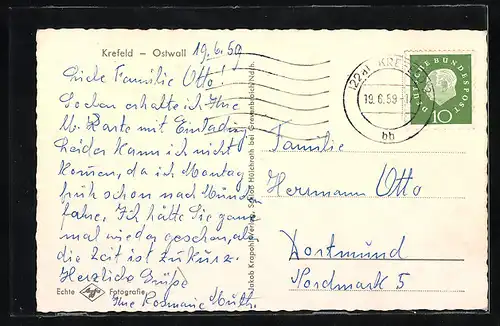 Krefeld – Ostwall 19.6.59
Liebe Familie Otto!
Soeben erhalte ich Ihre
lb. Karte mit Einladung
Leider kann ich nicht
kommen, da ich Montag
früh schon nach München
fahre. Ich hätte Sie gerne
mal wieder gesehen, aber
die Zeit ist zu kurz.
Herzliche Grüße
Ihre Rosmarie Muth.
Echte Agfa Fotografie
Jakob Krapohl-Verlag, Schloß Hülchrath bei Grevenbroich/Ndrh.
(22a) KREFELD
19.6.59
bb
DEUTSCHE BUNDESPOST
10
Familie
Herrmann Otto
Dortmund
Nordmark 5